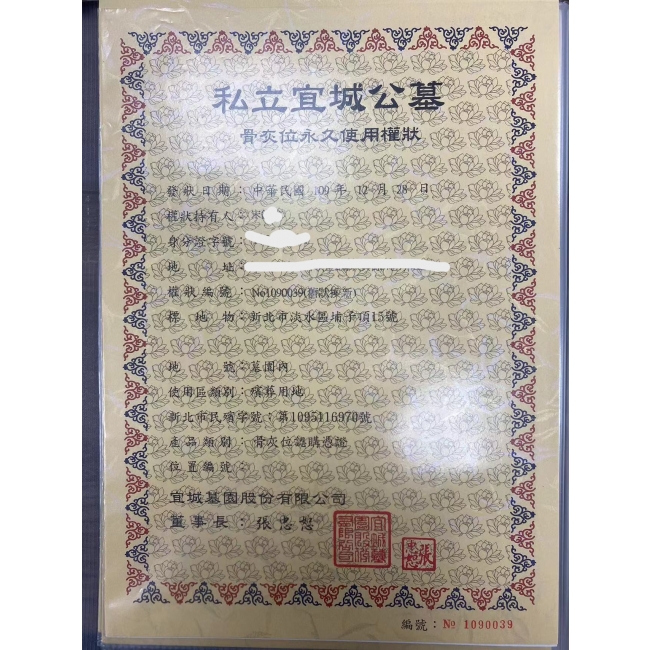 私立宜城公墓
骨灰位永久使用權狀
發狀日期：中華民國 109 年 12 月 28 日
權狀持有人：宋
身分證字號：
地 址：
權狀編號：No1090039(舊狀換新)
標 地 物：新北市淡水區埔子頂15號
地 號：墓園內
使用區類別：殯葬用地
新北市民殯字號：第1095116970號
產品類別：骨灰位認購憑證
位置編號：
宜城墓園股份有限公司
董事長：張忠恕
編號：№ 1090039